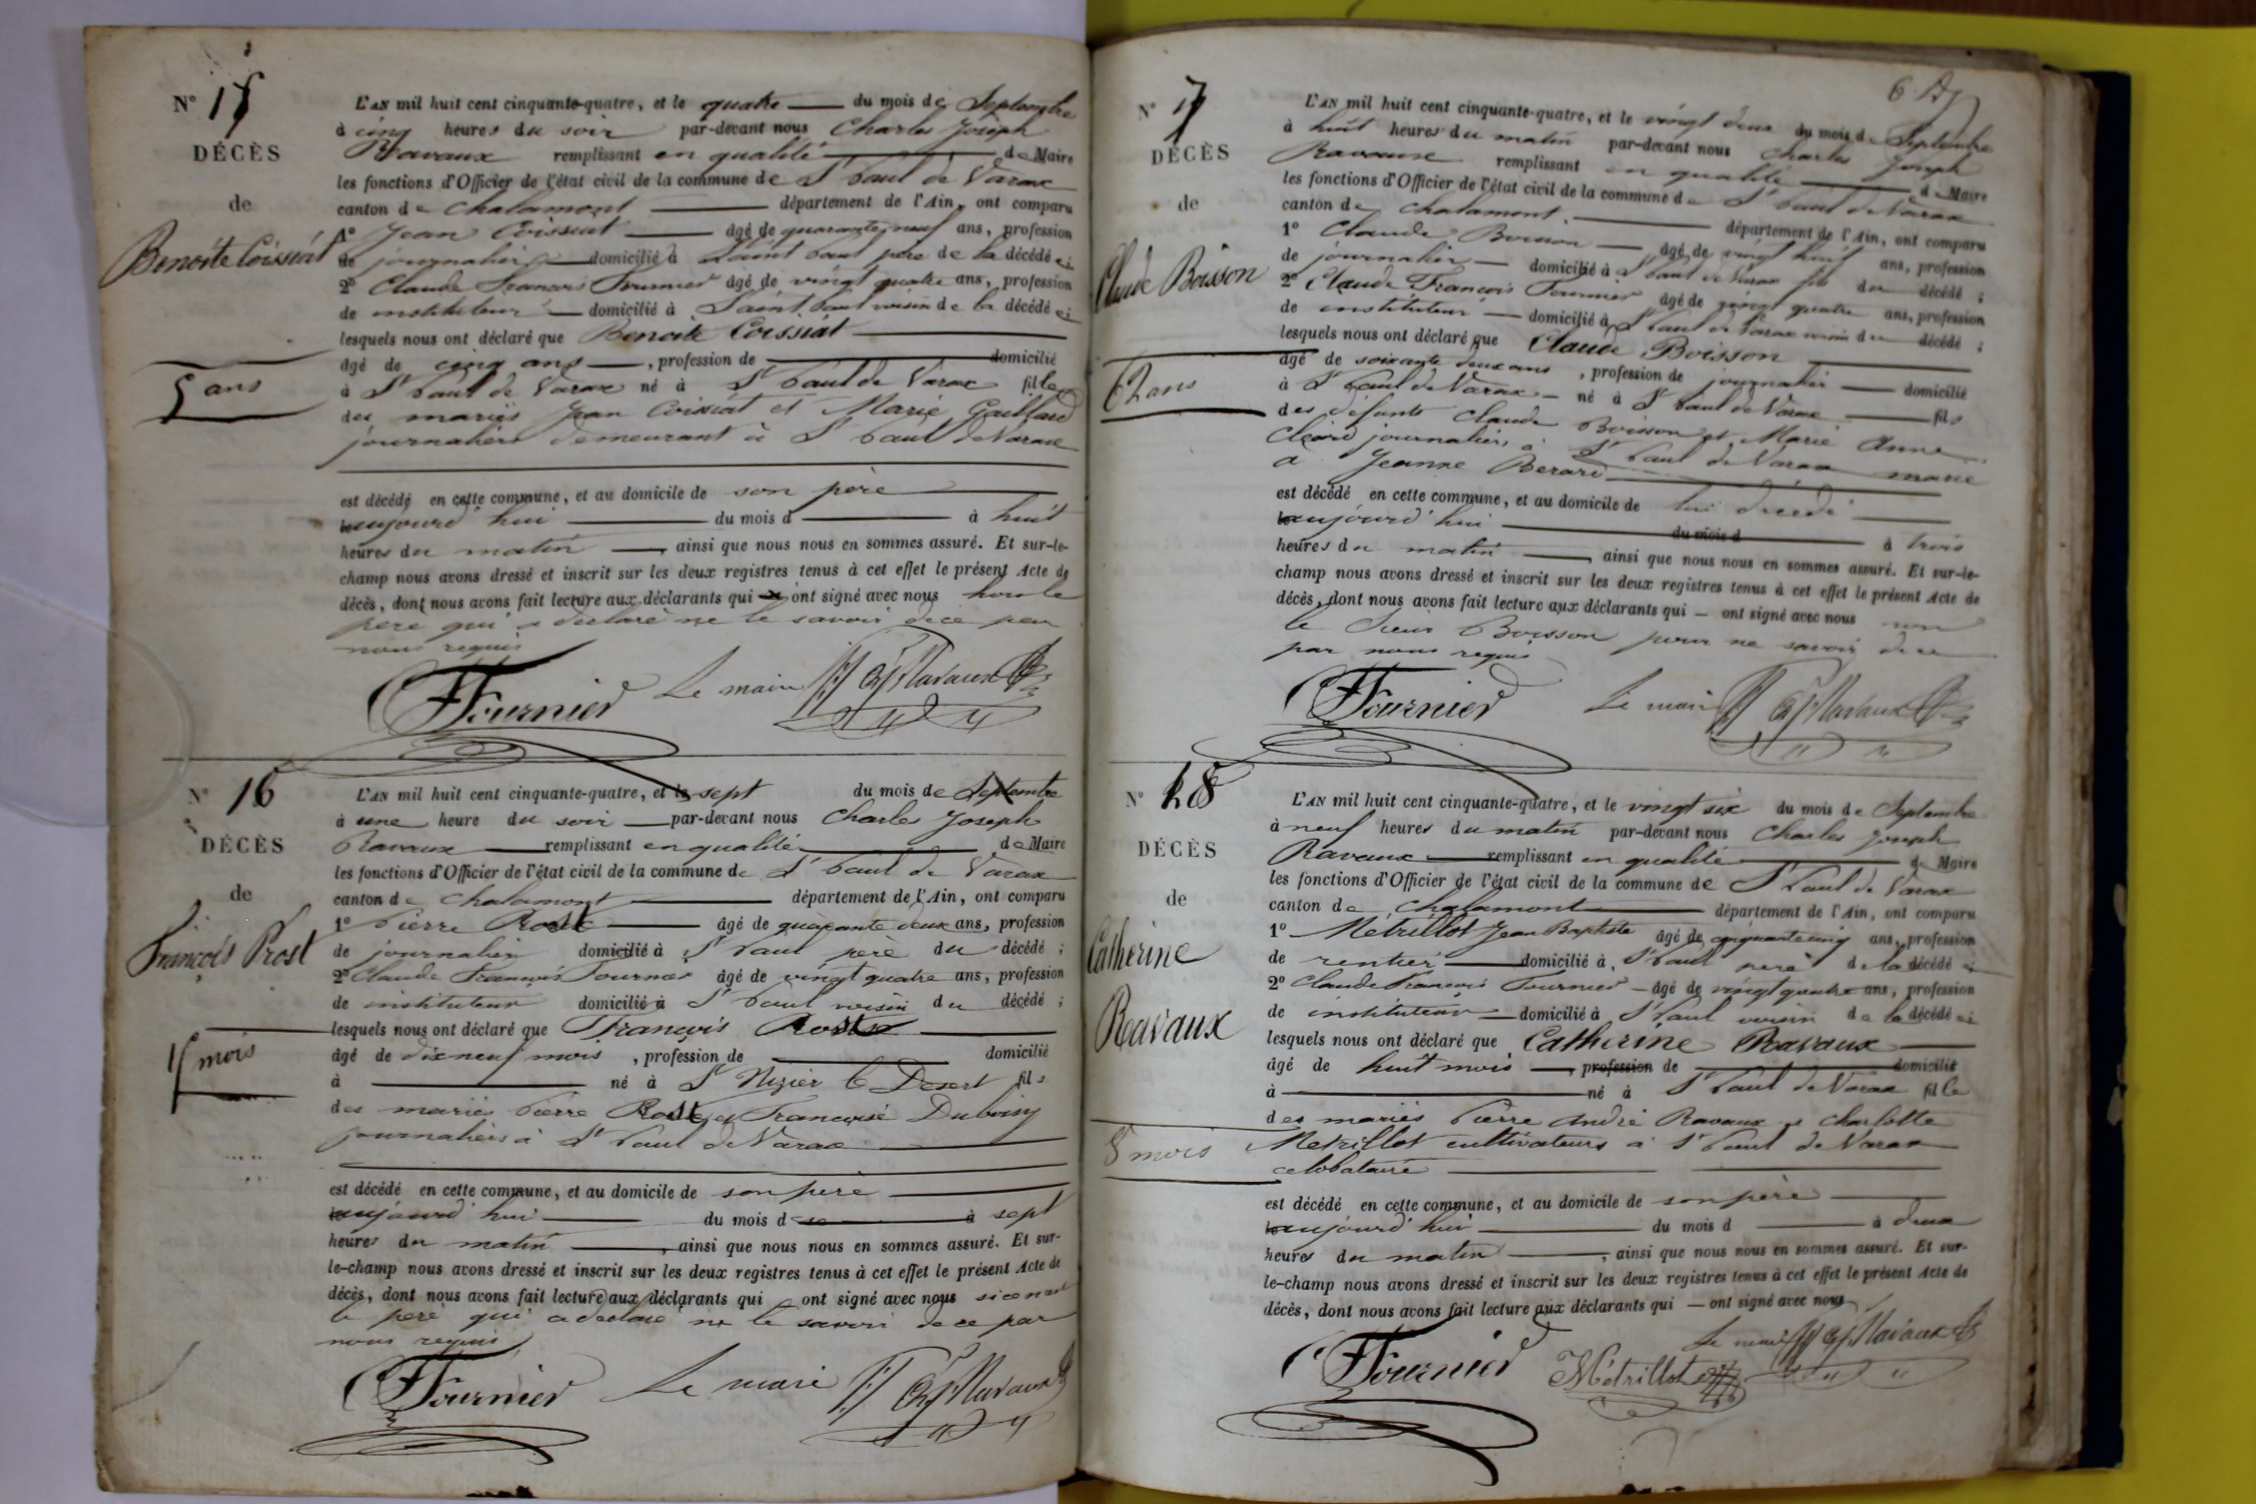 N° 15
DÉCÈS
de
Benoite Coissiat
5 ans
L'AN mil huit cent cinquante-quatre, et le quatre du mois de Septembre
à cinq heures du soir par-devant nous Charles Joseph
Ravaux remplissant en qualité de Maire
les fonctions d'Officier de l'état civil de la commune de St Paul de Varax
canton de Chalamont département de l'Ain, ont comparu
1° Jean Coissiat âgé de quarante neuf ans, profession
de journalier domicilié à Saint Paul père de la décédé ei
2° Claude François Fournier âgé de vingt quatre ans, profession
de instituteur domicilié à Saint Paul voisin de la décédé ei
lesquels nous ont déclaré que Benoite Coissiat
âgé de cinq ans, profession de domicilié
à St Paul de Varax né à St Paul de Varax fille
des mariés Jean Coissiat et Marie Gaillard
journaliers demeurant à St Paul de Varax
est décédé en cette commune, et au domicile de son père
aujourd'hui du mois d à huit
heures du matin, ainsi que nous nous en sommes assuré. Et sur-le-
champ nous avons dressé et inscrit sur les deux registres tenus à cet effet le présent Acte de
décès, dont nous avons fait lecture aux déclarants qui ont signé avec nous hors le
père qui a déclaré ne le savoir de ce par
nous requis
Fournier Le maire Ch J Ravaux
N° 16
DÉCÈS
de
François Prost
19 mois
L'AN mil huit cent cinquante-quatre, et le sept du mois de Septembre
à une heure du soir par-devant nous Charles Joseph
Ravaux remplissant en qualité de Maire
les fonctions d'Officier de l'état civil de la commune de St Paul de Varax
canton de Chalamont département de l'Ain, ont comparu
1° Pierre Prost âgé de quarante deux ans, profession
de journalier domicilié à St Paul père du décédé ;
2° Claude François Fournier âgé de vingt quatre ans, profession
de instituteur domicilié à St Paul voisin du décédé ;
lesquels nous ont déclaré que François Prost
âgé de dix neuf mois, profession de domicilié
à né à St Nizier le Desert fils
des mariés Pierre Prost et Françoise Duboisy
journaliers à St Paul de Varax
est décédé en cette commune, et au domicile de son père
aujourd'hui du mois de ce à sept
heures du matin, ainsi que nous nous en sommes assuré. Et sur-
le-champ nous avons dressé et inscrit sur les deux registres tenus à cet effet le présent Acte de
décès, dont nous avons fait lecture aux déclarants qui ont signé avec nous si ce n'est
le père qui a déclaré ne le savoir de ce par
nous requis
Fournier Le maire Ch J Ravaux
6
N° 17
DÉCÈS
de
Claude Boisson
62 ans
L'AN mil huit cent cinquante-quatre, et le vingt deux du mois de Septembre
à huit heures du matin par-devant nous Charles Joseph
Ravaux remplissant en qualité de Maire
les fonctions d'Officier de l'état civil de la commune de St Paul de Varax
canton de Chalamont département de l'Ain, ont comparu
1° Claude Boisson âgé de vingt huit ans, profession
de journalier domicilié à St Paul de Varax fils du décédé ;
2° Claude François Fournier âgé de vingt quatre ans, profession
de instituteur domicilié à St Paul de Varax voisin du décédé ;
lesquels nous ont déclaré que Claude Boisson
âgé de soixante deux ans, profession de journalier domicilié
à St Paul de Varax né à St Paul de Varax fils
des défunts Claude Boisson et Marie Anne
Cleard journaliers à St Paul de Varax marié
à Jeanne Berard
est décédé en cette commune, et au domicile de lui décédé
aujourd'hui du mois d à trois
heures du matin, ainsi que nous nous en sommes assuré. Et sur-le-
champ nous avons dressé et inscrit sur les deux registres tenus à cet effet le présent Acte de
décès, dont nous avons fait lecture aux déclarants qui ont signé avec nous non
le Sieur Boisson pour ne savoir de ce
par nous requis
Fournier Le maire Ch J Ravaux
N° 18
DÉCÈS
de
Catherine
Ravaux
8 mois
L'AN mil huit cent cinquante-quatre, et le vingt six du mois de Septembre
à neuf heures du matin par-devant nous Charles Joseph
Ravaux remplissant en qualité de Maire
les fonctions d'Officier de l'état civil de la commune de St Paul de Varax
canton de Chalamont département de l'Ain, ont comparu
1° Métrillot Jean Baptiste âgé de cinquante cinq ans, profession
de rentier domicilié à St Paul père de la décédé ei
2° Claude François Fournier âgé de vingt quatre ans, profession
de instituteur domicilié à St Paul voisin de la décédé ei
lesquels nous ont déclaré que Catherine Ravaux
âgé de huit mois, profession de domicilié
à né à St Paul de Varax fille
des mariés Pierre André Ravaux et Charlotte
Métrillot cultivateurs à St Paul de Varax
celobataire
est décédé en cette commune, et au domicile de son père
aujourd'hui du mois d à deux
heures du matin, ainsi que nous nous en sommes assuré. Et sur-
le-champ nous avons dressé et inscrit sur les deux registres tenus à cet effet le présent Acte de
décès, dont nous avons fait lecture aux déclarants qui — ont signé avec nous
Fournier Métrillot Le maire Ch J Ravaux